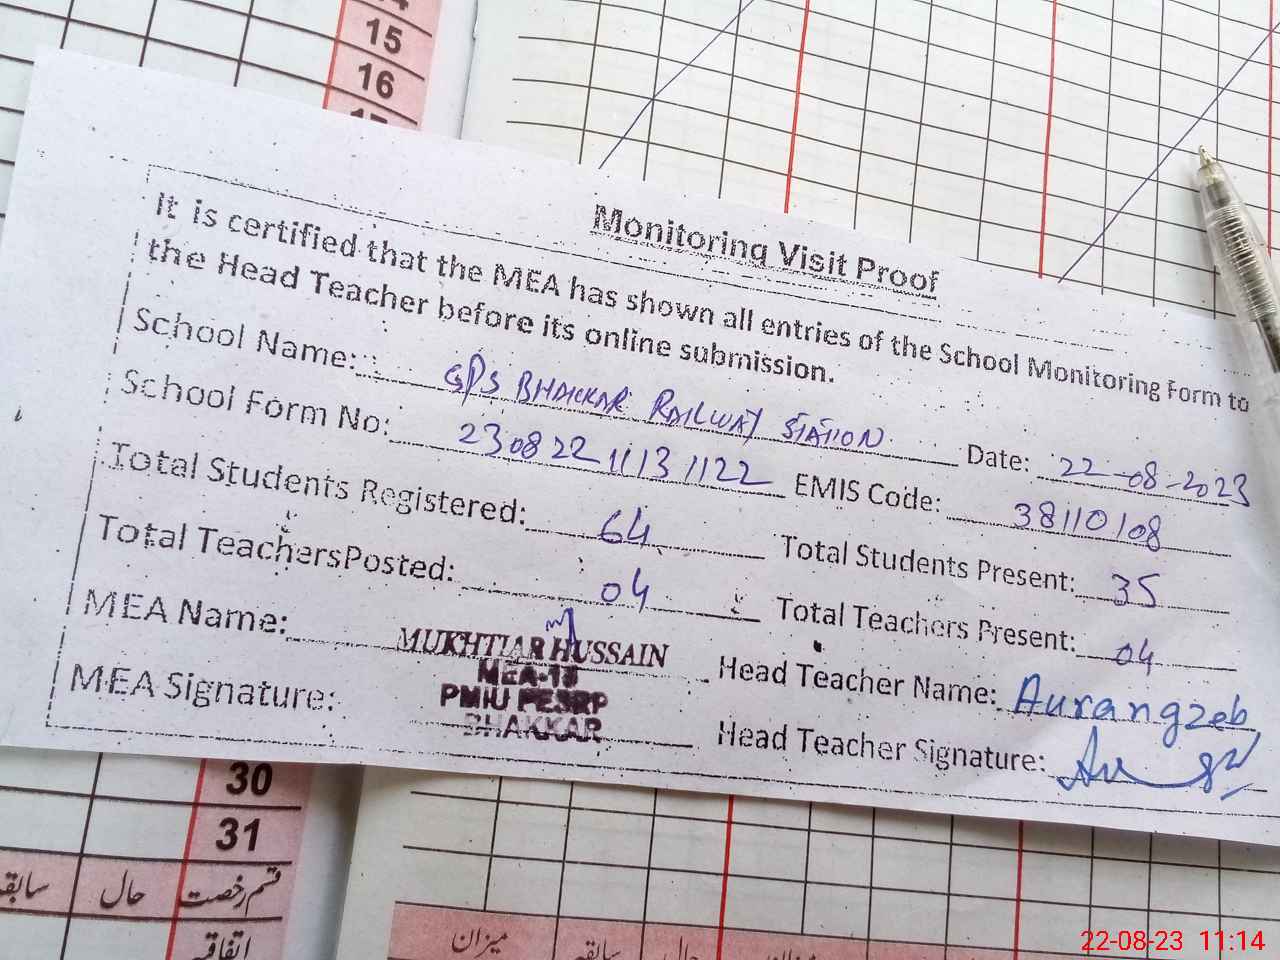 15
16
Monitoring Visit Proof
It is certified that the MEA has shown all entries of the School Monitoring Form to
the Head Teacher before its online submission.
School Name: GPS BHAKKAR RAILWAY STATION Date: 22-08-2023
School Form No: 23082211131122 EMIS Code: 38110108
Total Students Registered: 64 Total Students Present: 35
Total TeachersPosted: 04 Total Teachers Present: 04
MEA Name: MUKHTIAR HUSSAIN Head Teacher Name: Aurangzeb
MEA-13
PMIU PESRP
BHAKKAR
MEA Signature: Head Teacher Signature:
30
31
قسم رخصت حال سابقہ
اتفاقیہ
میزان سابقہ حال
22-08-23 11:14